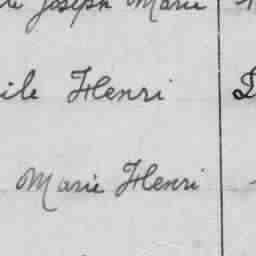 Joseph Marie
ile Henri
Marie Henri